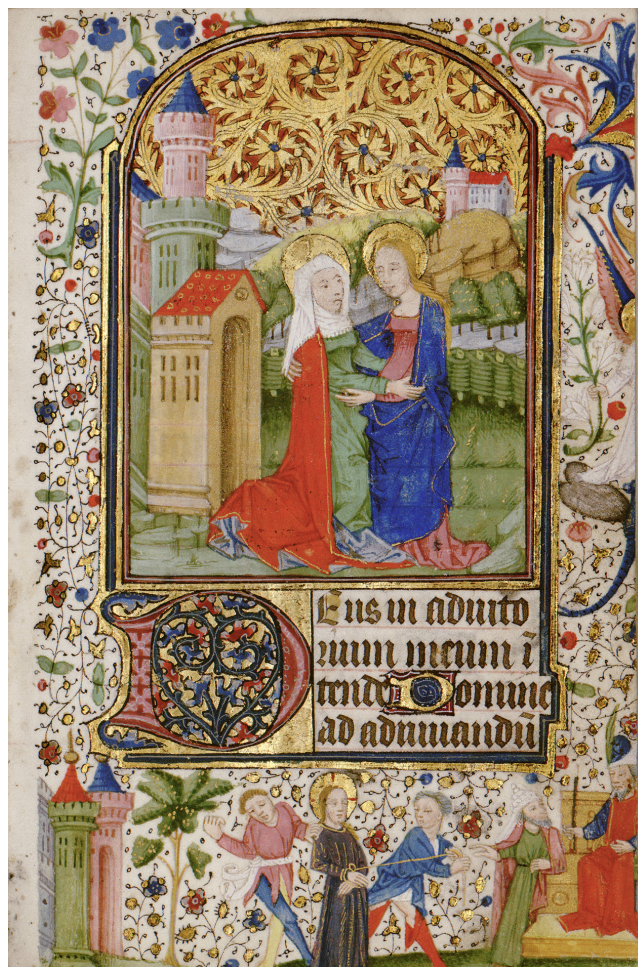 DEus in adiuto
rium meum ī
tende Domine
ad adiuuandū